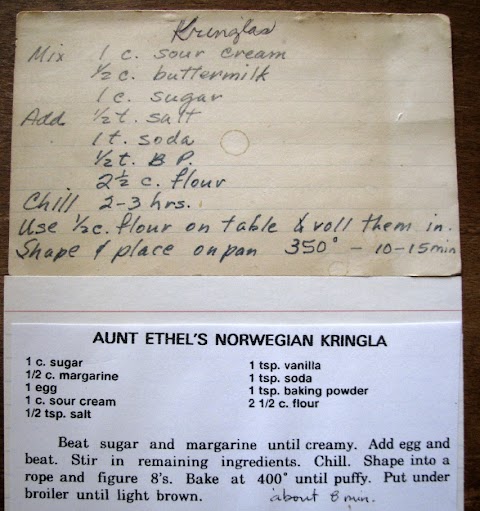 Krunglas
Mix 1 c. sour cream
½ c. buttermilk
1 c. sugar
Add ½ t. salt
1 t. soda
½ t. B P.
2½ c. flour
Chill 2-3 hrs.
Use ½ c. flour on table & roll them in.
Shape & place on pan 350° - 10-15 min
AUNT ETHEL'S NORWEGIAN KRINGLA
1 c. sugar
1/2 c. margarine
1 egg
1 c. sour cream
1/2 tsp. salt
1 tsp. vanilla
1 tsp. soda
1 tsp. baking powder
2 1/2 c. flour
Beat sugar and margarine until creamy. Add egg and
beat. Stir in remaining ingredients. Chill. Shape into a
rope and figure 8's. Bake at 400° until puffy. Put under
broiler until light brown. about 8 min.